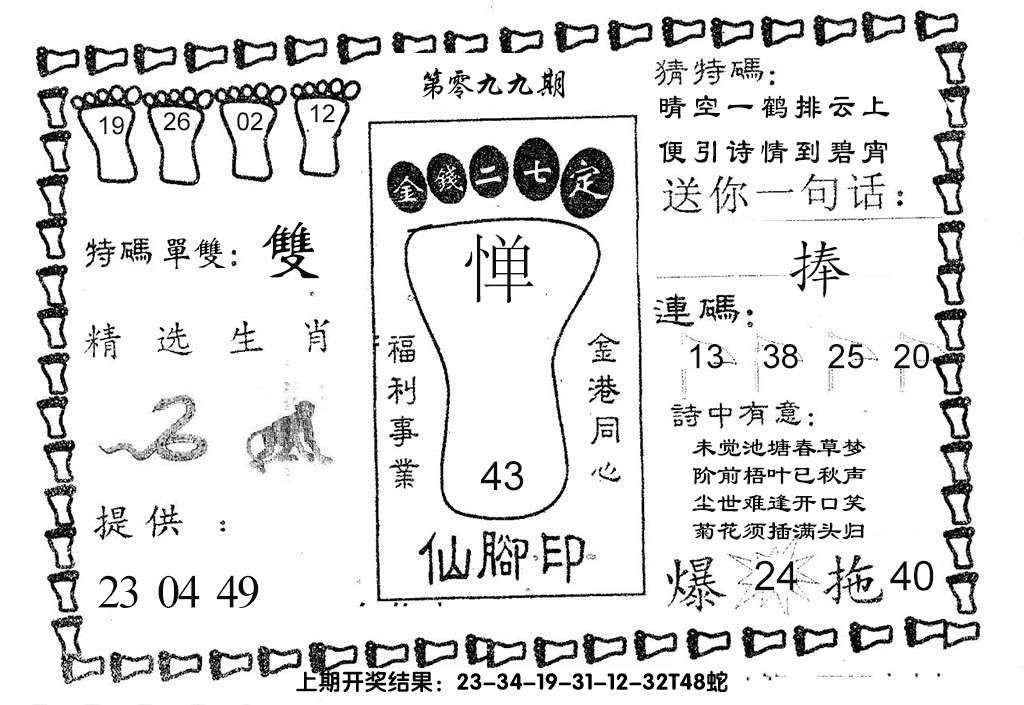 第零九九期
19 26 02 12
特碼單雙：雙
精选生肖
提供：
23 04 49
金錢二七定
惮
福利事業
金港同心
43
仙腳印
猜特碼：
晴空一鹤排云上
便引诗情到碧宵
送你一句话：
捧
連碼：
13 38 25 20
詩中有意：
未觉池塘春草梦
阶前梧叶已秋声
尘世难逢开口笑
菊花须插满头归
爆 24 拖 40
上期开奖结果：23-34-19-31-12-32T48蛇